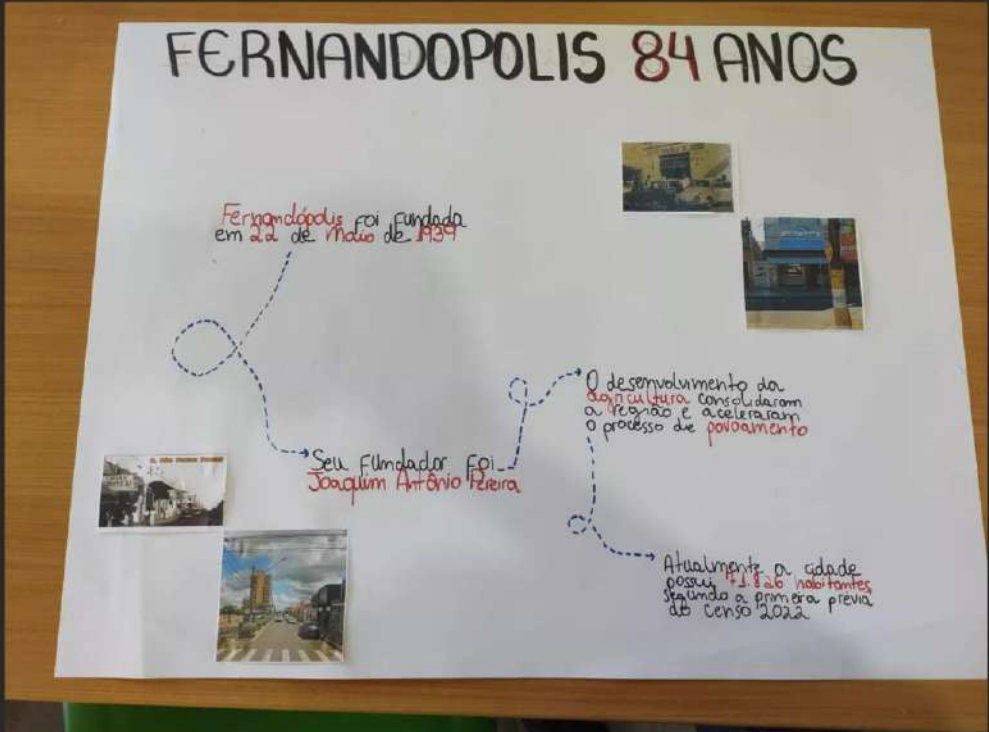 FERNANDOPOLIS 84 ANOS
Fernandópolis foi fundada
em 22 de Maio de 1939
Seu Fundador Foi
Joaquim Antônio Pereira
O desenvolvimento da
agricultura consolidaram
a região e aceleraram
o processo de povoamento
Atualmente a cidade
possui 71.826 habitantes,
segundo a primeira prévia
do Censo 2022